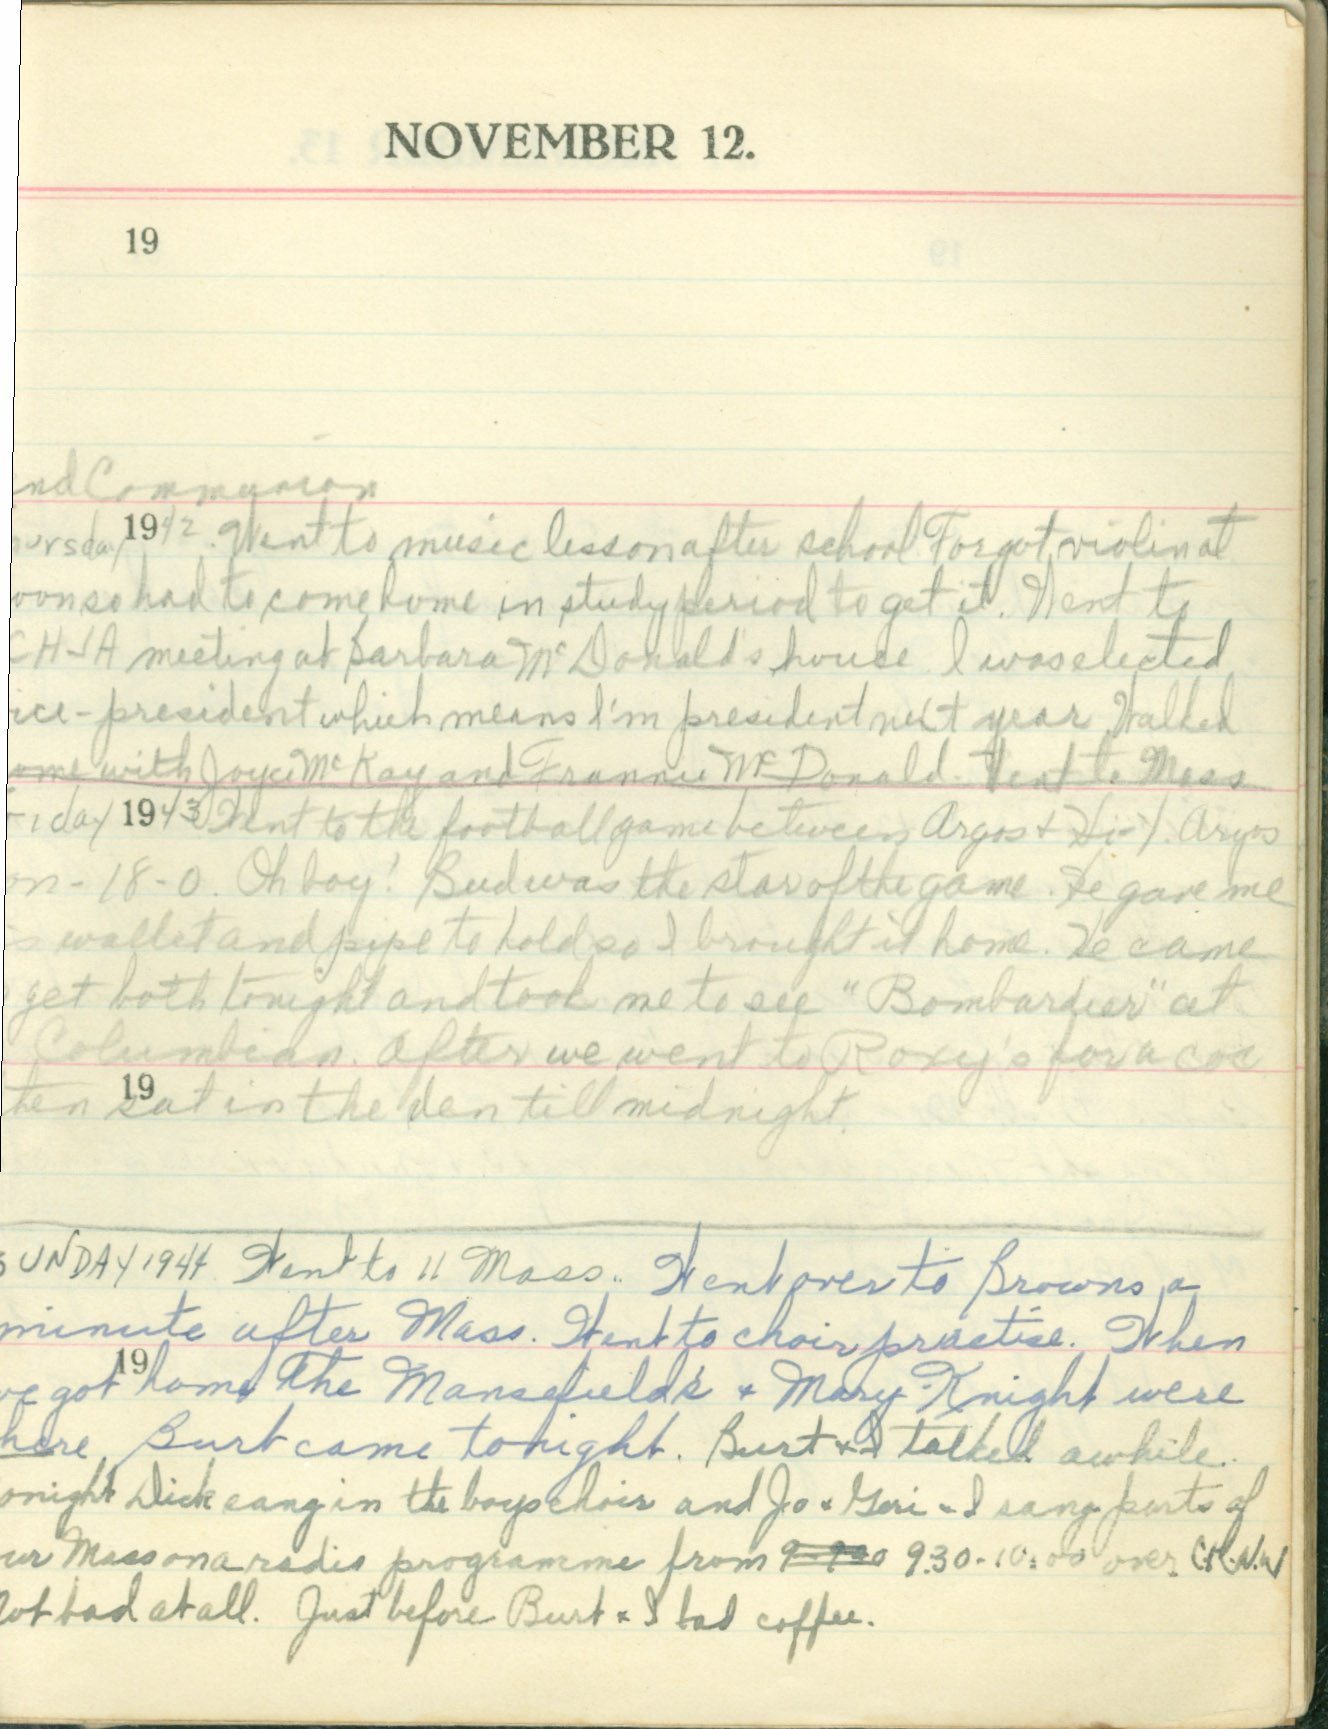 NOVEMBER 12.
19
nd Communion
ursday 1942. Went to music lesson after school Forgot violin at
oon so had to come home in study period to get it. Went to
meeting at Barbara McDonald's house I was elected
ice-president which means I'm president next year Walked
ome with Joyce McKay and Frannie McDonald. Went to Mass
riday 1943 Went to the football game between Argos + Hi-Y. Argos
on - 18-0. Oh boy! Bud was the star of the game. He gave me
s wallet and pipe to hold so I brought it home. He came
get both tonight and took me to see "Bombardier" at
Columbian. After we went to Roxy's for a coc
19
hen sat in the den till midnight.
SUNDAY 1944 Went to 11 Mass.. Went over to Browns a
minute after Mass. Went to choir practise. When
19
we got home the Mansefields & Mary Knight were
here Burt came tonight. Burt & I talked awhile..
onight Dick sang in the boys choir and Jo & Geri & I sang parts of
ur Mass on a radio programme from 9.30-10:00 over C.K.N.W
Not bad at all. Just before Burt & I had coffee.